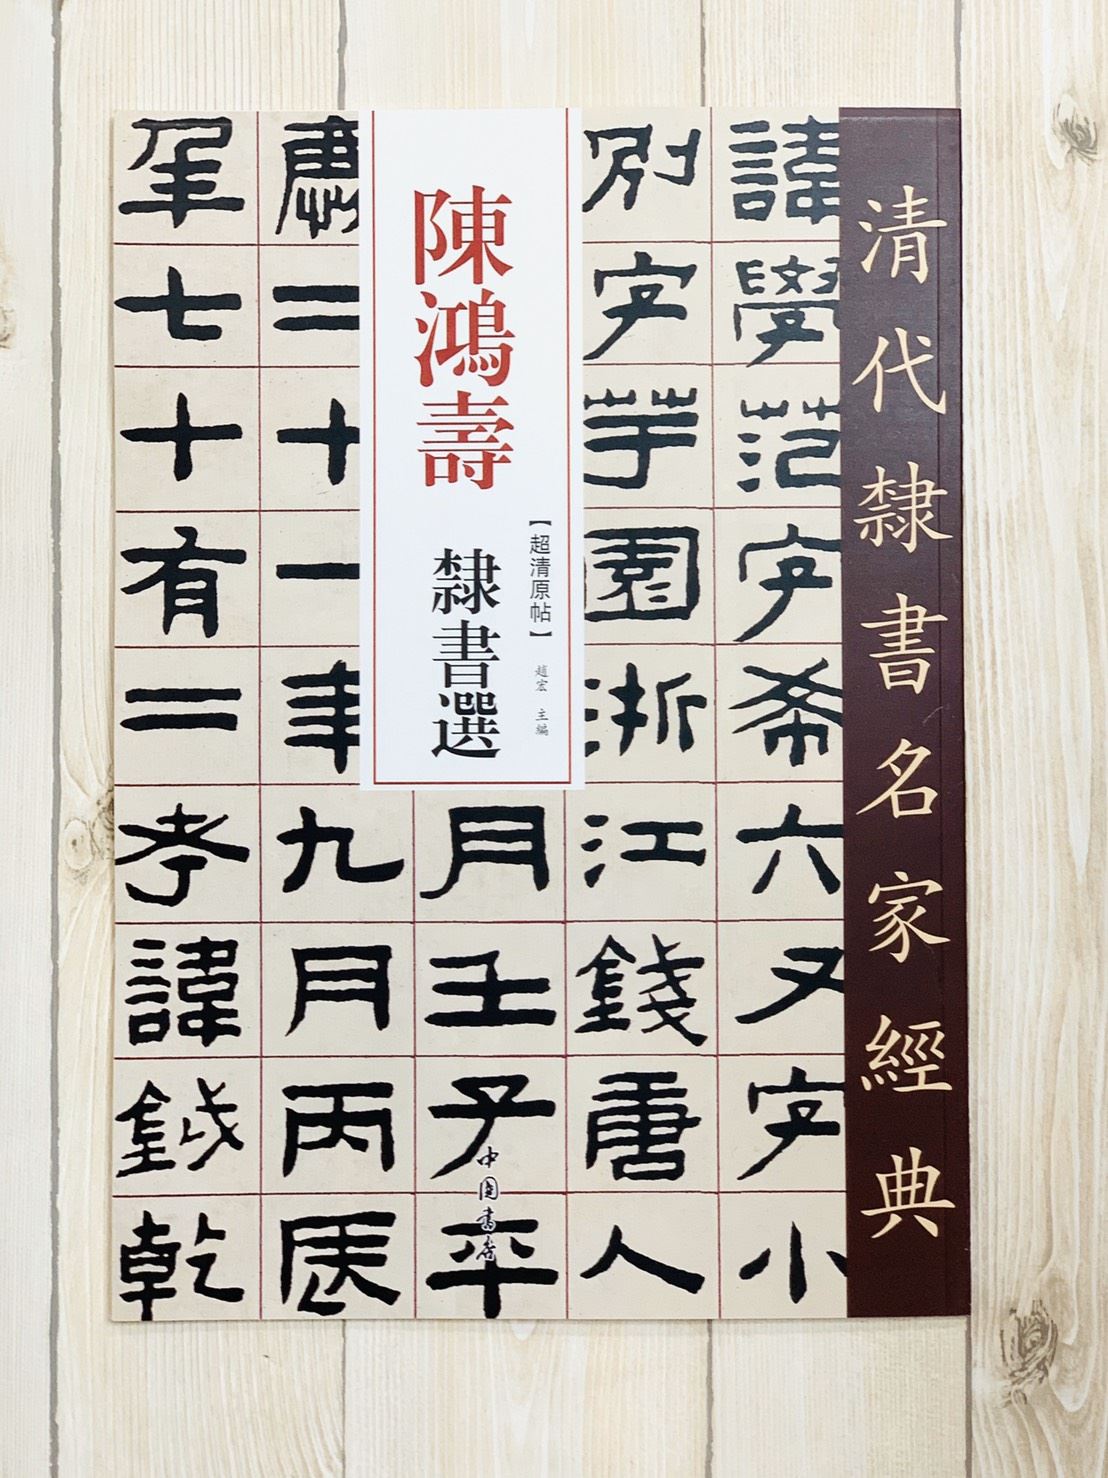 清代隸書名家經典
諱學范字希六又字小
別字芋園浙江錢唐人
【超清原帖】
趙宏 主編
陳鴻壽
隸書選
月壬子平
慶二十一年九月丙辰
年七十有二考諱鉞乾
中國書店